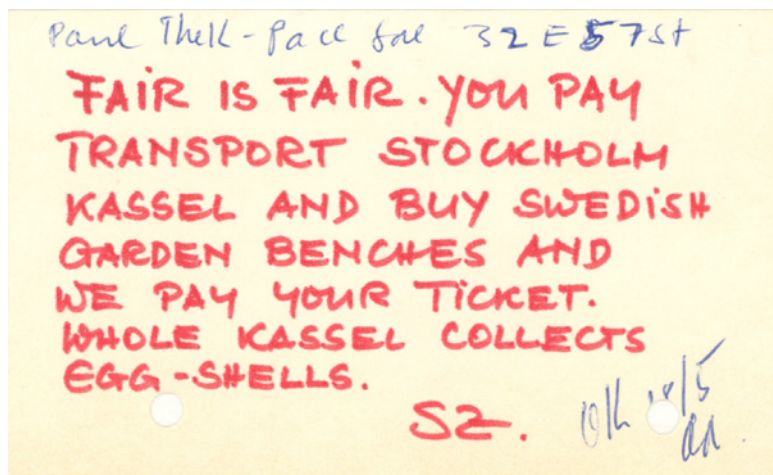 Paul Thek - Pace Gal 32 E 57 St
FAIR IS FAIR. YOU PAY
TRANSPORT STOCKHOLM
KASSEL AND BUY SWEDISH
GARDEN BENCHES AND
WE PAY YOUR TICKET.
WHOLE KASSEL COLLECTS
EGG-SHELLS.
SZ.
OK 18/5